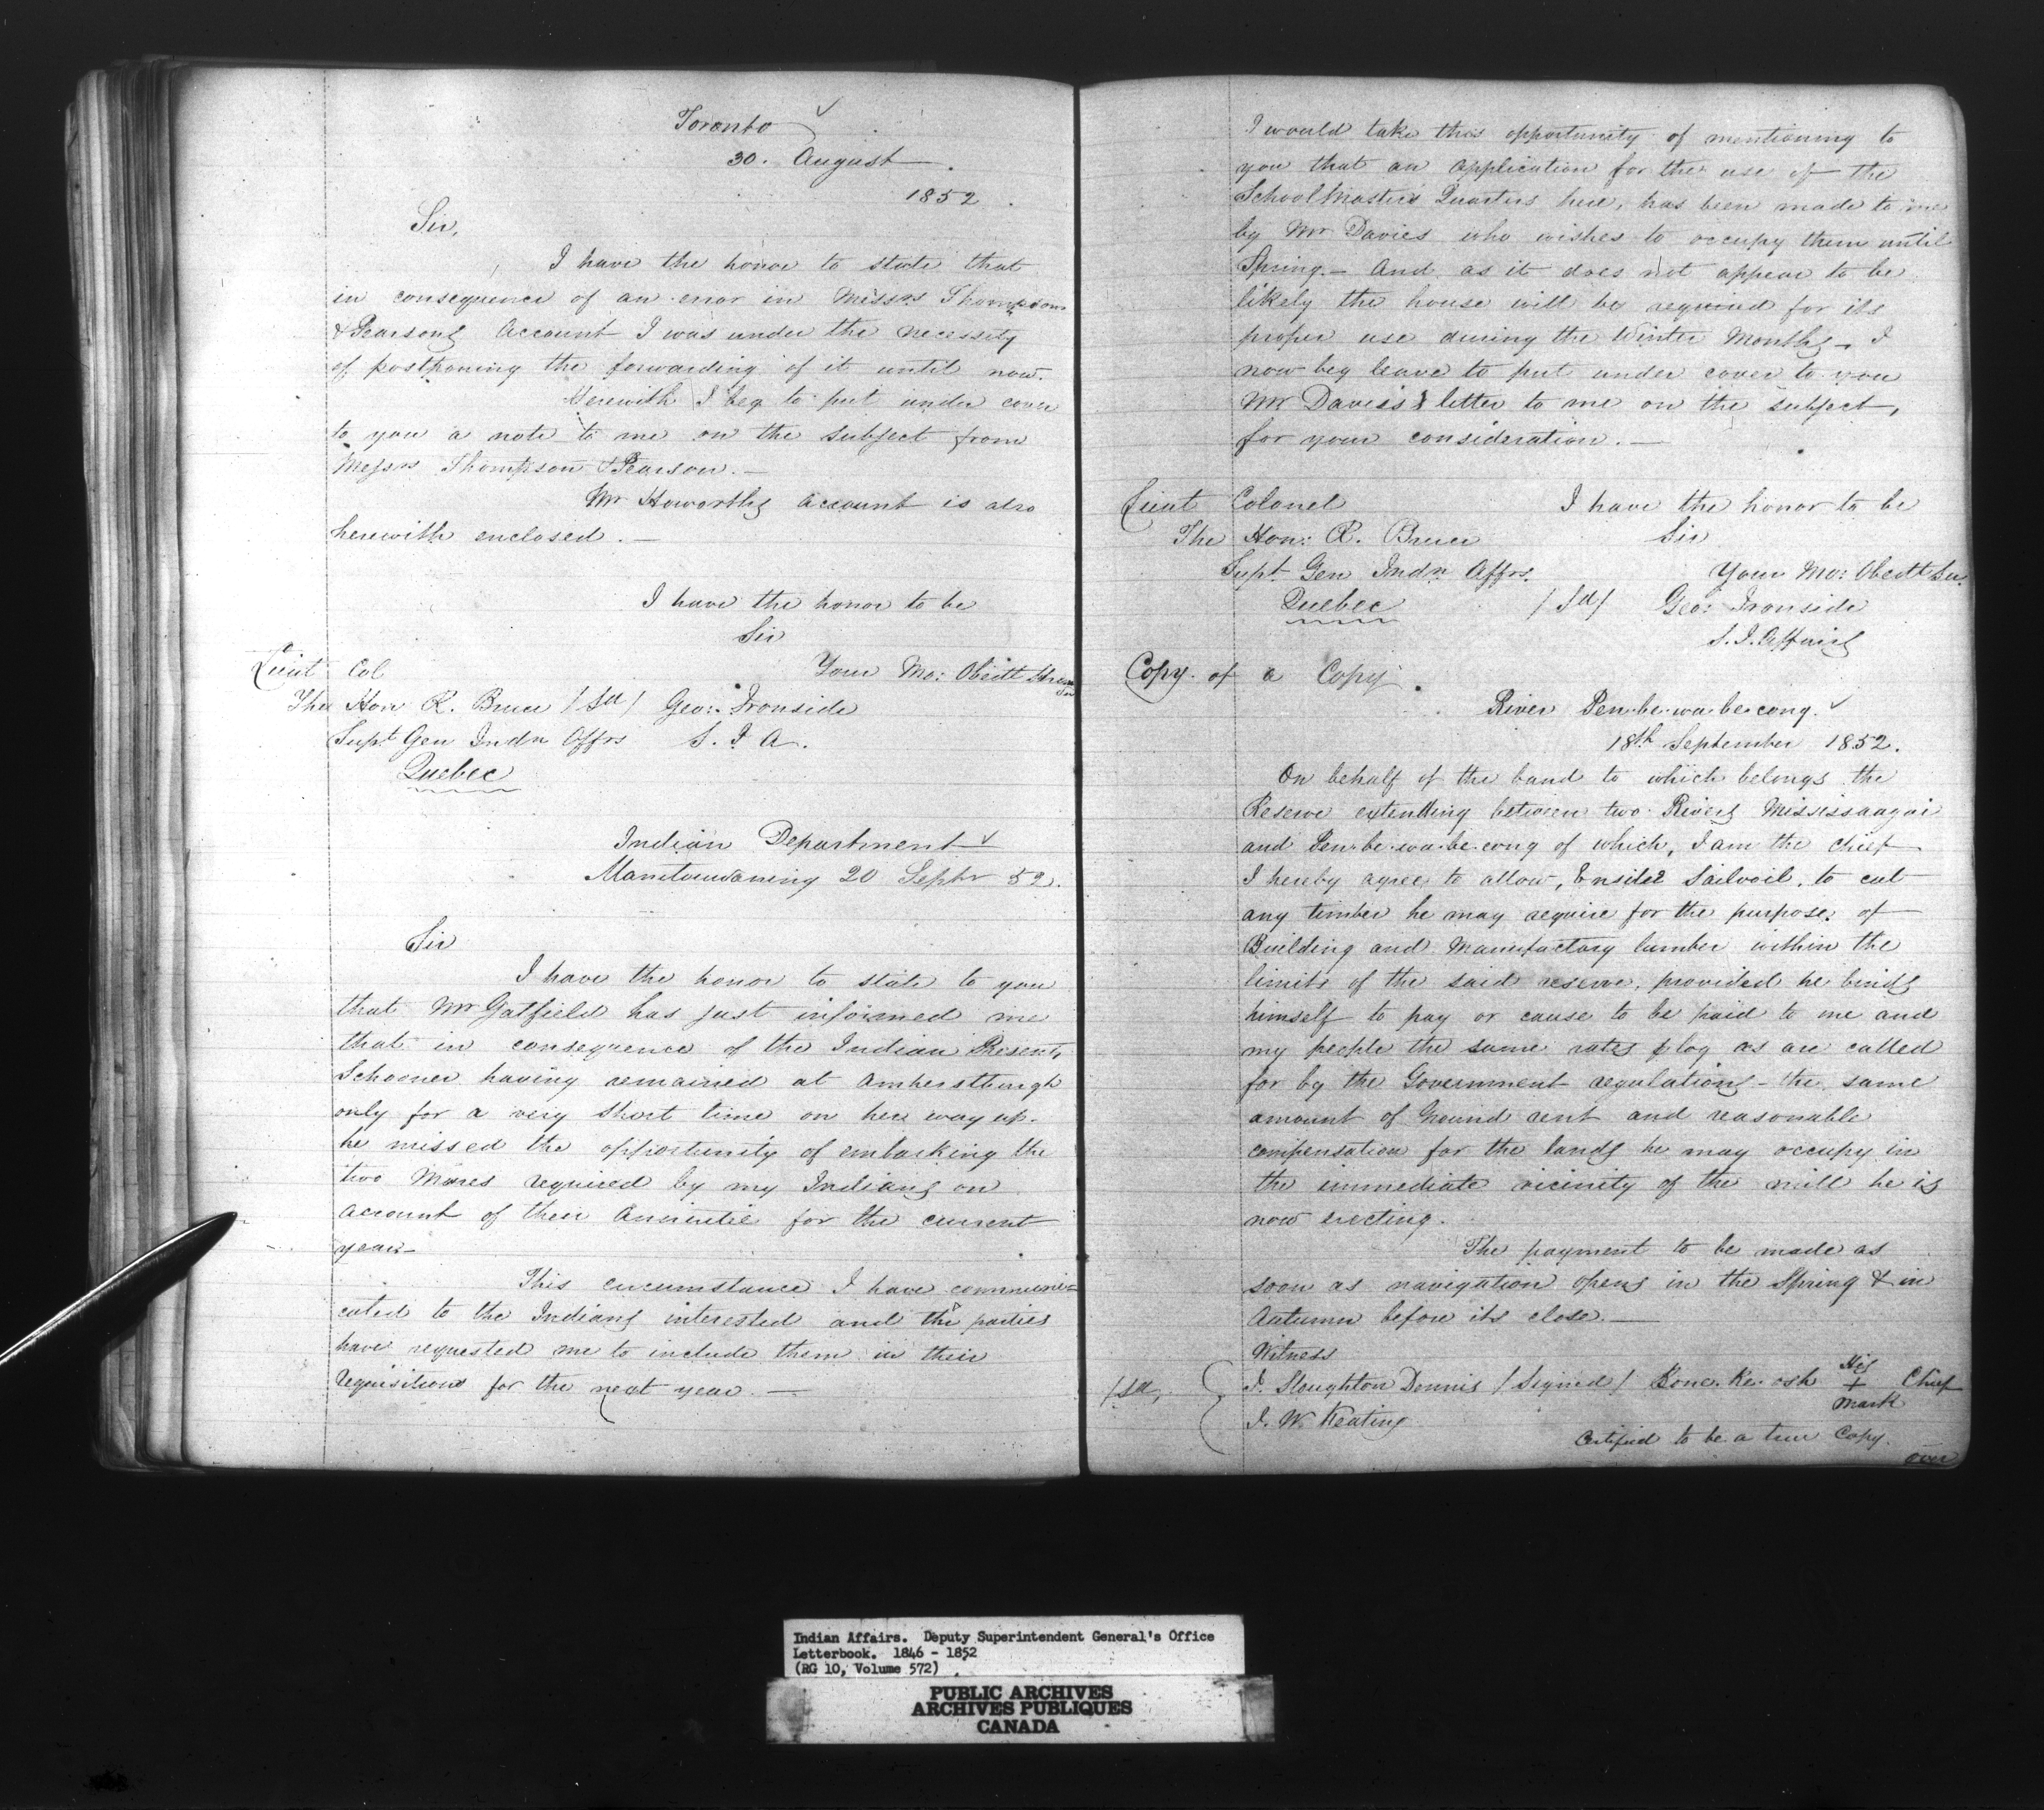 Toronto
30. August
1852
Sir,
I have the honor to state that
in consequence of an error in Messrs Thompson
& Pearsons Account I was under the necessity
of postponing the forwarding of it until now.
Herewith I beg to put under cover
to you a note to me on the subject from
Messrs Thompson & Pearson. —
Mr Howorths Account is also
herewith enclosed. —
I have the honor to be
Sir
Your Mo: Obedt
Lieut Col
The Hon R. Bruce /Sd/ Geo: Ironside
Supt Gen Indn Affrs S. I. A.
Quebec
Indian Department
Manitouwaning 20 Septr 52.
Sir
I have the honor to state to you
that Mr Gatfield has just informed me
that in consequence of the Indian Present
Schooner having remained at Amherstburgh
only for a very short time on her way up.
he missed the opportunity of embarking the
two Mares required by my Indians on
account of their Annuitie for the current
year —
This circumstance I have communi=
cated to the Indians interested and the parties
have requested me to include them in their
Requisitions for the next year. —
I would take this opportunity of mentioning to
you that an application for the use of the
School Masters Quarters here, has been made to me
by Mr Davies who wishes to occupy them until
Spring. — And as it does not appear to be
likely the house will be required for its
proper use during the Winter Months — I
now beg leave to put under cover to you
Mr Davies's letter to me on the subject,
for your consideration. —
I have the honor to be
Sir
Your Mo: Obedt Sert
Lieut Colonel
The Hon: R. Bruce
Supt Gen Indn Affrs.
Quebec /Sd/ Geo: Ironside
S. I. Affairs
Copy of a Copy.
River Pen.be.wa.be.cong.
18th September 1852.
On behalf of the band to which belongs the
Reserve extending between two Rivers Mississaugai
and Pen.be.wa.be.cong of which, I am the Chief
I hereby agree to allow, Sailvoil, to cut
any timber he may require for the purpose of
Building and Manufactory lumber within the
limits of the said reserve, provided he binds
himself to pay or cause to be paid to me and
my people the same rates log as are called
for by the Government regulations — the same
amount of Ground rent and reasonable
compensation for the lands he may occupy in
the immediate vicinity of the mill he is
now erecting.
The payment to be made as
soon as navigation opens in the Spring & in
Autumn before its close. —
Witness
/Sd/ J. Stoughton Dennis /Signed/ Bone.Ke.osh His + Mark Chief
J. W. Keating
Certified to be a true Copy.
over
Indian Affairs. Deputy Superintendent General's Office
Letterbook. 1846 - 1852
(RG 10, Volume 572)
PUBLIC ARCHIVES
ARCHIVES PUBLIQUES
CANADA